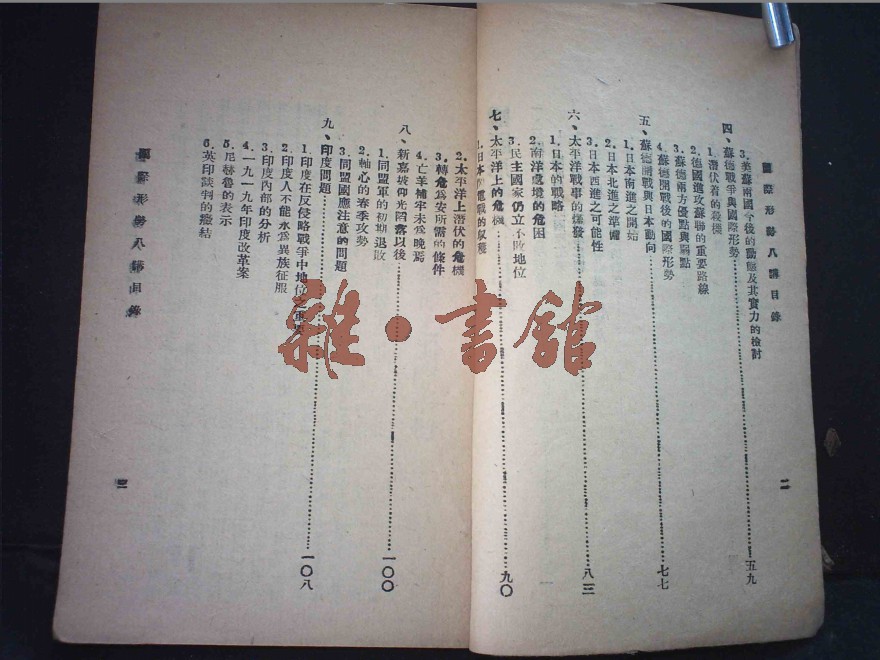 國際形勢八講目錄
二
3.英蘇南國今後的動態及其實力的檢討
四、蘇德戰爭與國際形勢……五九
1.潛伏着的殺機
2.德國進攻蘇聯的重要路線
3.蘇德兩方優點與弱點
4.蘇德開戰後的國際形勢
五、蘇德開戰與日本動向……七七
1.日本南進之開始
2.日本北進之準備
3.日本西進之可能性
六、太平洋戰事的爆發……八三
1.日本的戰略
2.南洋處境的危困
3.民主國家仍立不敗地位
七、太平洋上的危機……九〇
1.日本閃電戰的收穫
2.太平洋上潛伏的危機
3.轉危爲安所需的條件
4.亡羊補牢未爲晚焉
八、新嘉坡仰光陷落以後……一〇〇
1.同盟軍的初期退敗
2.軸心的春季攻勢
3.同盟國應注意的問題
九、印度問題……一〇八
1.印度在反侵略戰爭中地位之重要
2.印度人不能永爲異族征服
3.印度內部的分析
4.一九一九年印度改革案
5.尼赫魯的表示
6.英印談判的癥結
國際形勢八講目錄
三
雜·書館